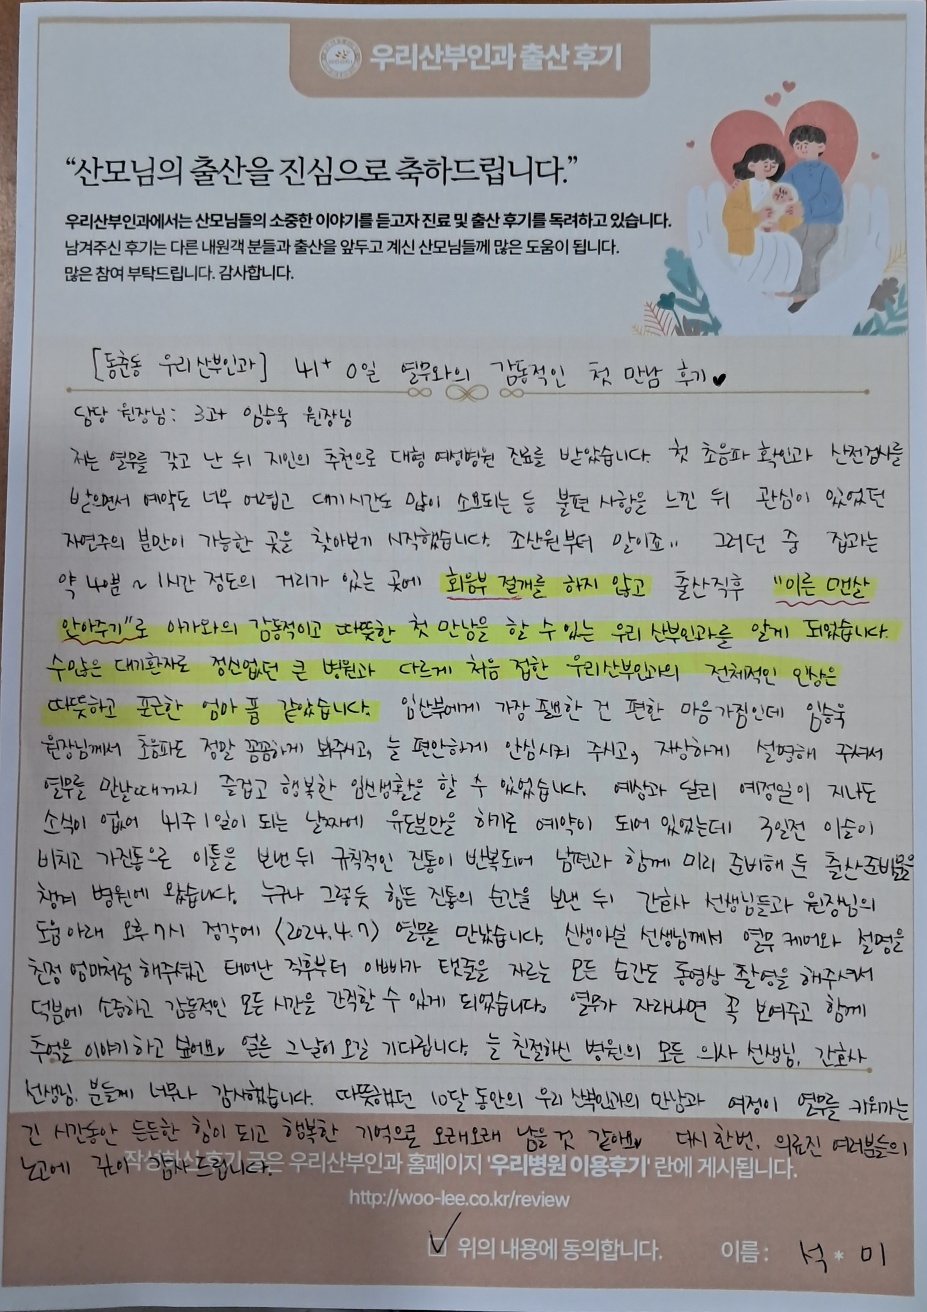 우리산부인과 출산 후기
“산모님의 출산을 진심으로 축하드립니다.”
우리산부인과에서는 산모님들의 소중한 이야기를 듣고자 진료 및 출산 후기를 독려하고 있습니다.
남겨주신 후기는 다른 내원객 분들과 출산을 앞두고 계신 산모님들께 많은 도움이 됩니다.
많은 참여 부탁드립니다. 감사합니다.
[동춘동 우리산부인과] 41+0일 열무와의 감동적인 첫 만남 후기♥
담당 원장님: 3과 임승욱 원장님
저는 열무를 갖고 난 뒤 지인의 추천으로 대형 여성병원 진료를 받았습니다. 첫 초음파 확인과 산전검사를
받으면서 예약도 너무 어렵고 대기시간도 많이 소요되는 등 불편 사항을 느낀 뒤 관심이 있었던
자연주의 분만이 가능한 곳을 찾아보기 시작했습니다. 조산원부터 말이죠.. 그러던 중 집과는
약 40분 ~ 1시간 정도의 거리가 있는 곳에 회음부 절개를 하지 않고 출산직후 "이른 맨살
안아주기"로 아가와의 감동적이고 따뜻한 첫 만남을 할 수 있는 우리 산부인과를 알게 되었습니다.
수많은 대기환자로 정신없던 큰 병원과 다르게 처음 접한 우리산부인과의 전체적인 인상은
따뜻하고 포근한 엄마 품 같았습니다. 임산부에게 가장 필요한 건 편한 마음가짐인데 임승욱
원장님께서 초음파도 정말 꼼꼼하게 봐주시고, 늘 편안하게 안심시켜 주시고, 자상하게 설명해 주셔서
열무를 만날때까지 즐겁고 행복한 임신생활을 할 수 있었습니다. 예상과 달리 예정일이 지나도
소식이 없어 41주 1일이 되는 날짜에 유도분만을 하기로 예약이 되어 있었는데 3일전 이슬이
비치고 가진통으로 이틀을 보낸 뒤 규칙적인 진통이 반복되어 남편과 함께 미리 준비해 둔 출산준비물을
챙겨 병원에 왔습니다. 누구나 그렇듯 힘든 진통의 순간을 보낸 뒤 간호사 선생님들과 원장님의
도움 아래 오후 7시 정각에 <2024.4.7> 열무를 만났습니다. 신생아실 선생님께서 열무 케어와 설명을
친정 엄마처럼 해주셨고 태어난 직후부터 아빠가 탯줄을 자르는 모든 순간도 동영상 촬영을 해주셔서
덕분에 소중하고 감동적인 모든 시간을 간직할 수 있게 되었습니다. 열무가 자라나면 꼭 보여주고 함께
추억을 이야기하고 싶어요♥ 얼른 그날이 오길 기다립니다. 늘 친절하신 병원의 모든 의사 선생님, 간호사
선생님, 분들께 너무나 감사했습니다. 따뜻했던 10달 동안의 우리 산부인과의 만남과 여정이 열무를 키워가는
긴 시간동안 든든한 힘이 되고 행복한 기억으로 오래오래 남을 것 같아요♥ 다시 한번, 의료진 여러분들의
노고에 깊이 감사 드립니다.
작성하신 후기 글은 우리산부인과 홈페이지 '우리병원 이용후기' 란에 게시됩니다.
http://woo-lee.co.kr/review
☑ 위의 내용에 동의합니다. 이름 : 석 * 미